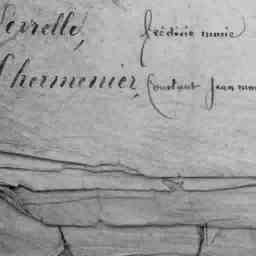 Perrelle, frédéric marie
Lhermenier, Constant Jean